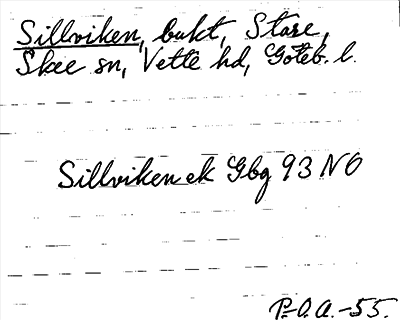 Sillviken, bukt, Stare,
Skee sn, Vette hd, Göteb. l.
Sillviken ek Gbg 93 NO
P.-O.A.-55.